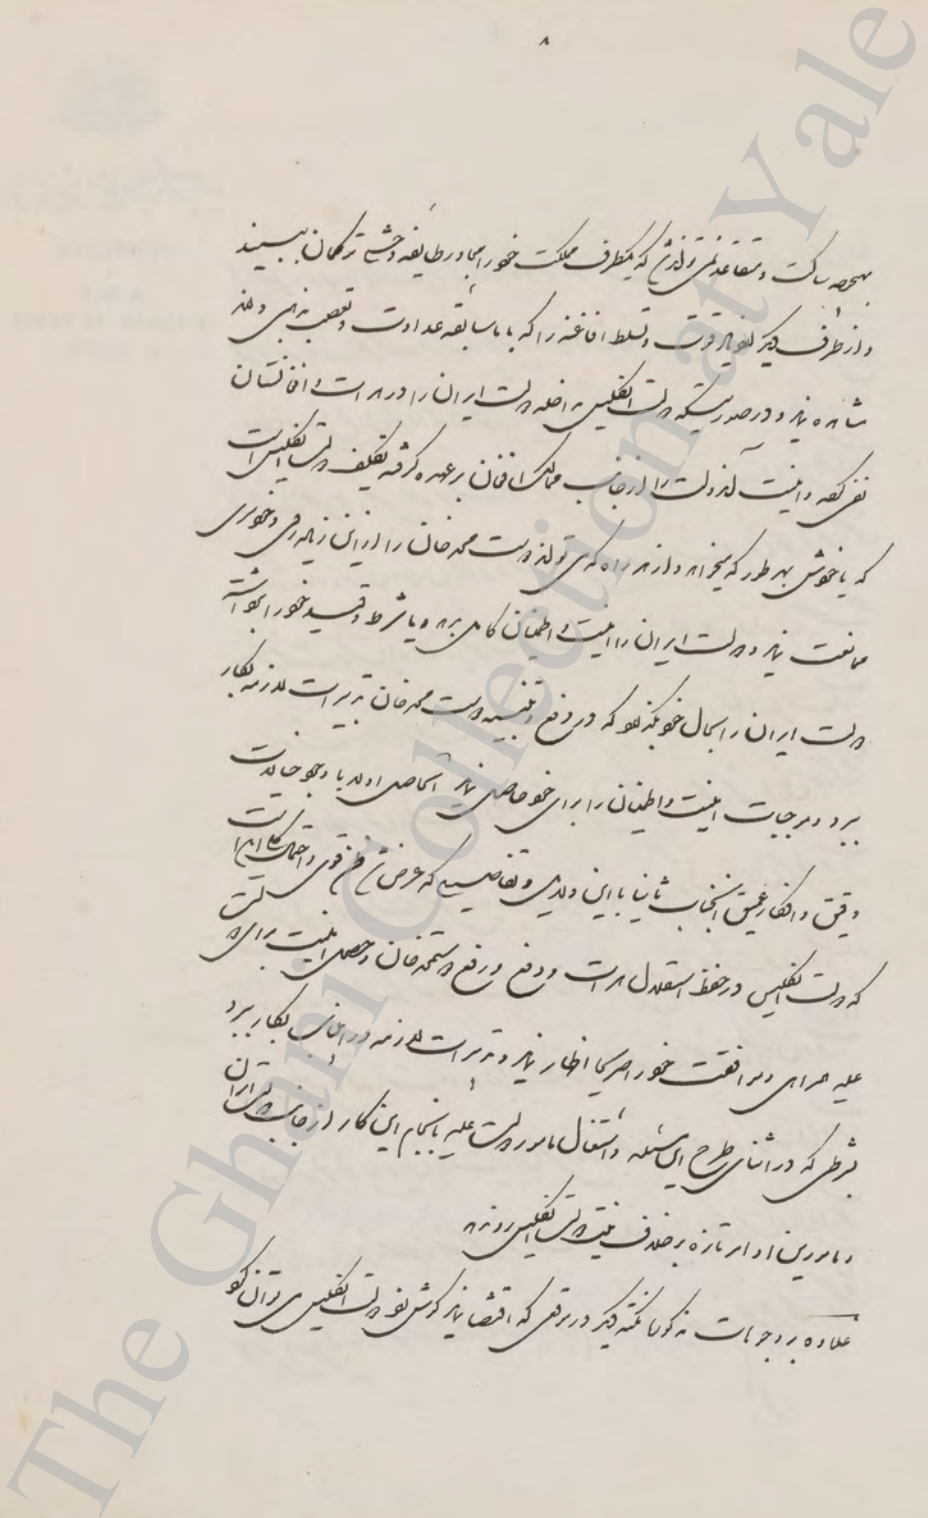 ۸
بهیچوجه ساکت و متقاعد نمی‌تواند شد که یکطرف مملکت خود را مجاور طایفه وحشی ترکمان ببیند
و از طرف دیگر قوت و تسلط افاغنه را که با ما سابقه عداوت و تعصب مذهبی دارند
مشاهده نماید و در صورتیکه دولت انگلیس مداخله دولت ایران را در هرات و افغانستان
نفی کرده و امنیت آن دولت را از جانب ممالک افغان بر عهده گرفته تکلیف دولت انگلیس است
که یا خودش بهر طور که میخواهد و از هر راه که می‌تواند دوست محمد خان را از این زیاده‌روی و خودسری
ممانعت نماید و دولت ایران را امنیت و اطمینان کامل بدهد و یا شرط و قید خود را برداشته
دولت ایران را بحال خود بگذارد که در دفع و تنبیه دوست محمد خان تدبیرات لازمه بکار
ببرد و موجبات امنیت و اطمینان را برای خود حاصل نماید الحاصل اولا با وجود خیالات
دقیق و افکار عمیق آنجناب ثانیا با این دلایل و تفاصیل که عرض شد ظن قوی و احتمال کلی است
که دولت انگلیس در حفظ استقلال هرات و دفع و رفع دوست محمد خان و حصول امنیت برای دولت
علیه همراهی و موافقت خود را صریحا اظهار نماید و تدبیرات لازمه در اینباب بکار ببرد
بشرطی که در اثنای طرح این مسئله و اشتغال مامور دولت علیه بانجام این کار از جانب دولت ایران
و مامورین او امر تازه بر خلاف نیت دولت انگلیس رو ندهد
علاوه بر وجوهات مذکوره نکته دیگر در موقعی که اقتضا نماید گوش‌زد دولت انگلیس می‌توان کرد
The Ghani Collection at Yale